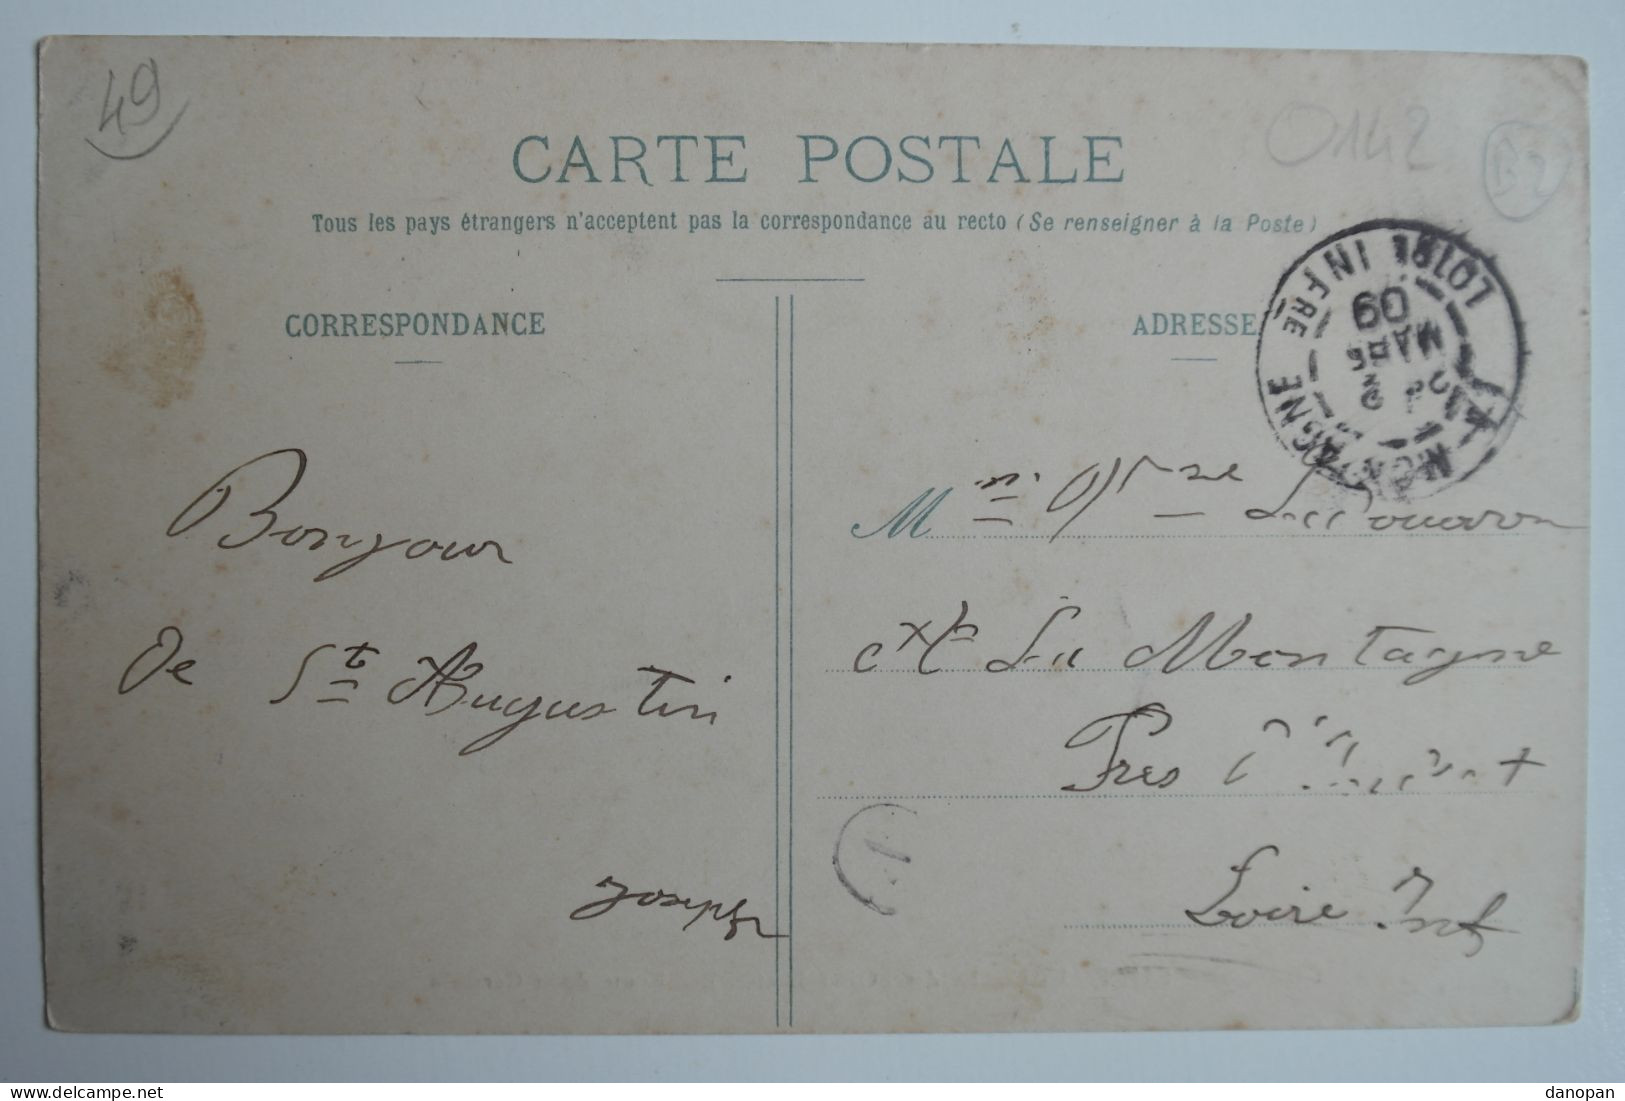 49
0142
B2
CARTE POSTALE
Tous les pays étrangers n'acceptent pas la correspondance au recto (Se renseigner à la Poste)
CORRESPONDANCE
ADRESSE
LA MONTAGNE
LOIRE INFRE
2
MARS
09
Bonjour
De St Augustin
Joseph
M
La Montagne
Près
Loire Inf
delcampe.net
danopan